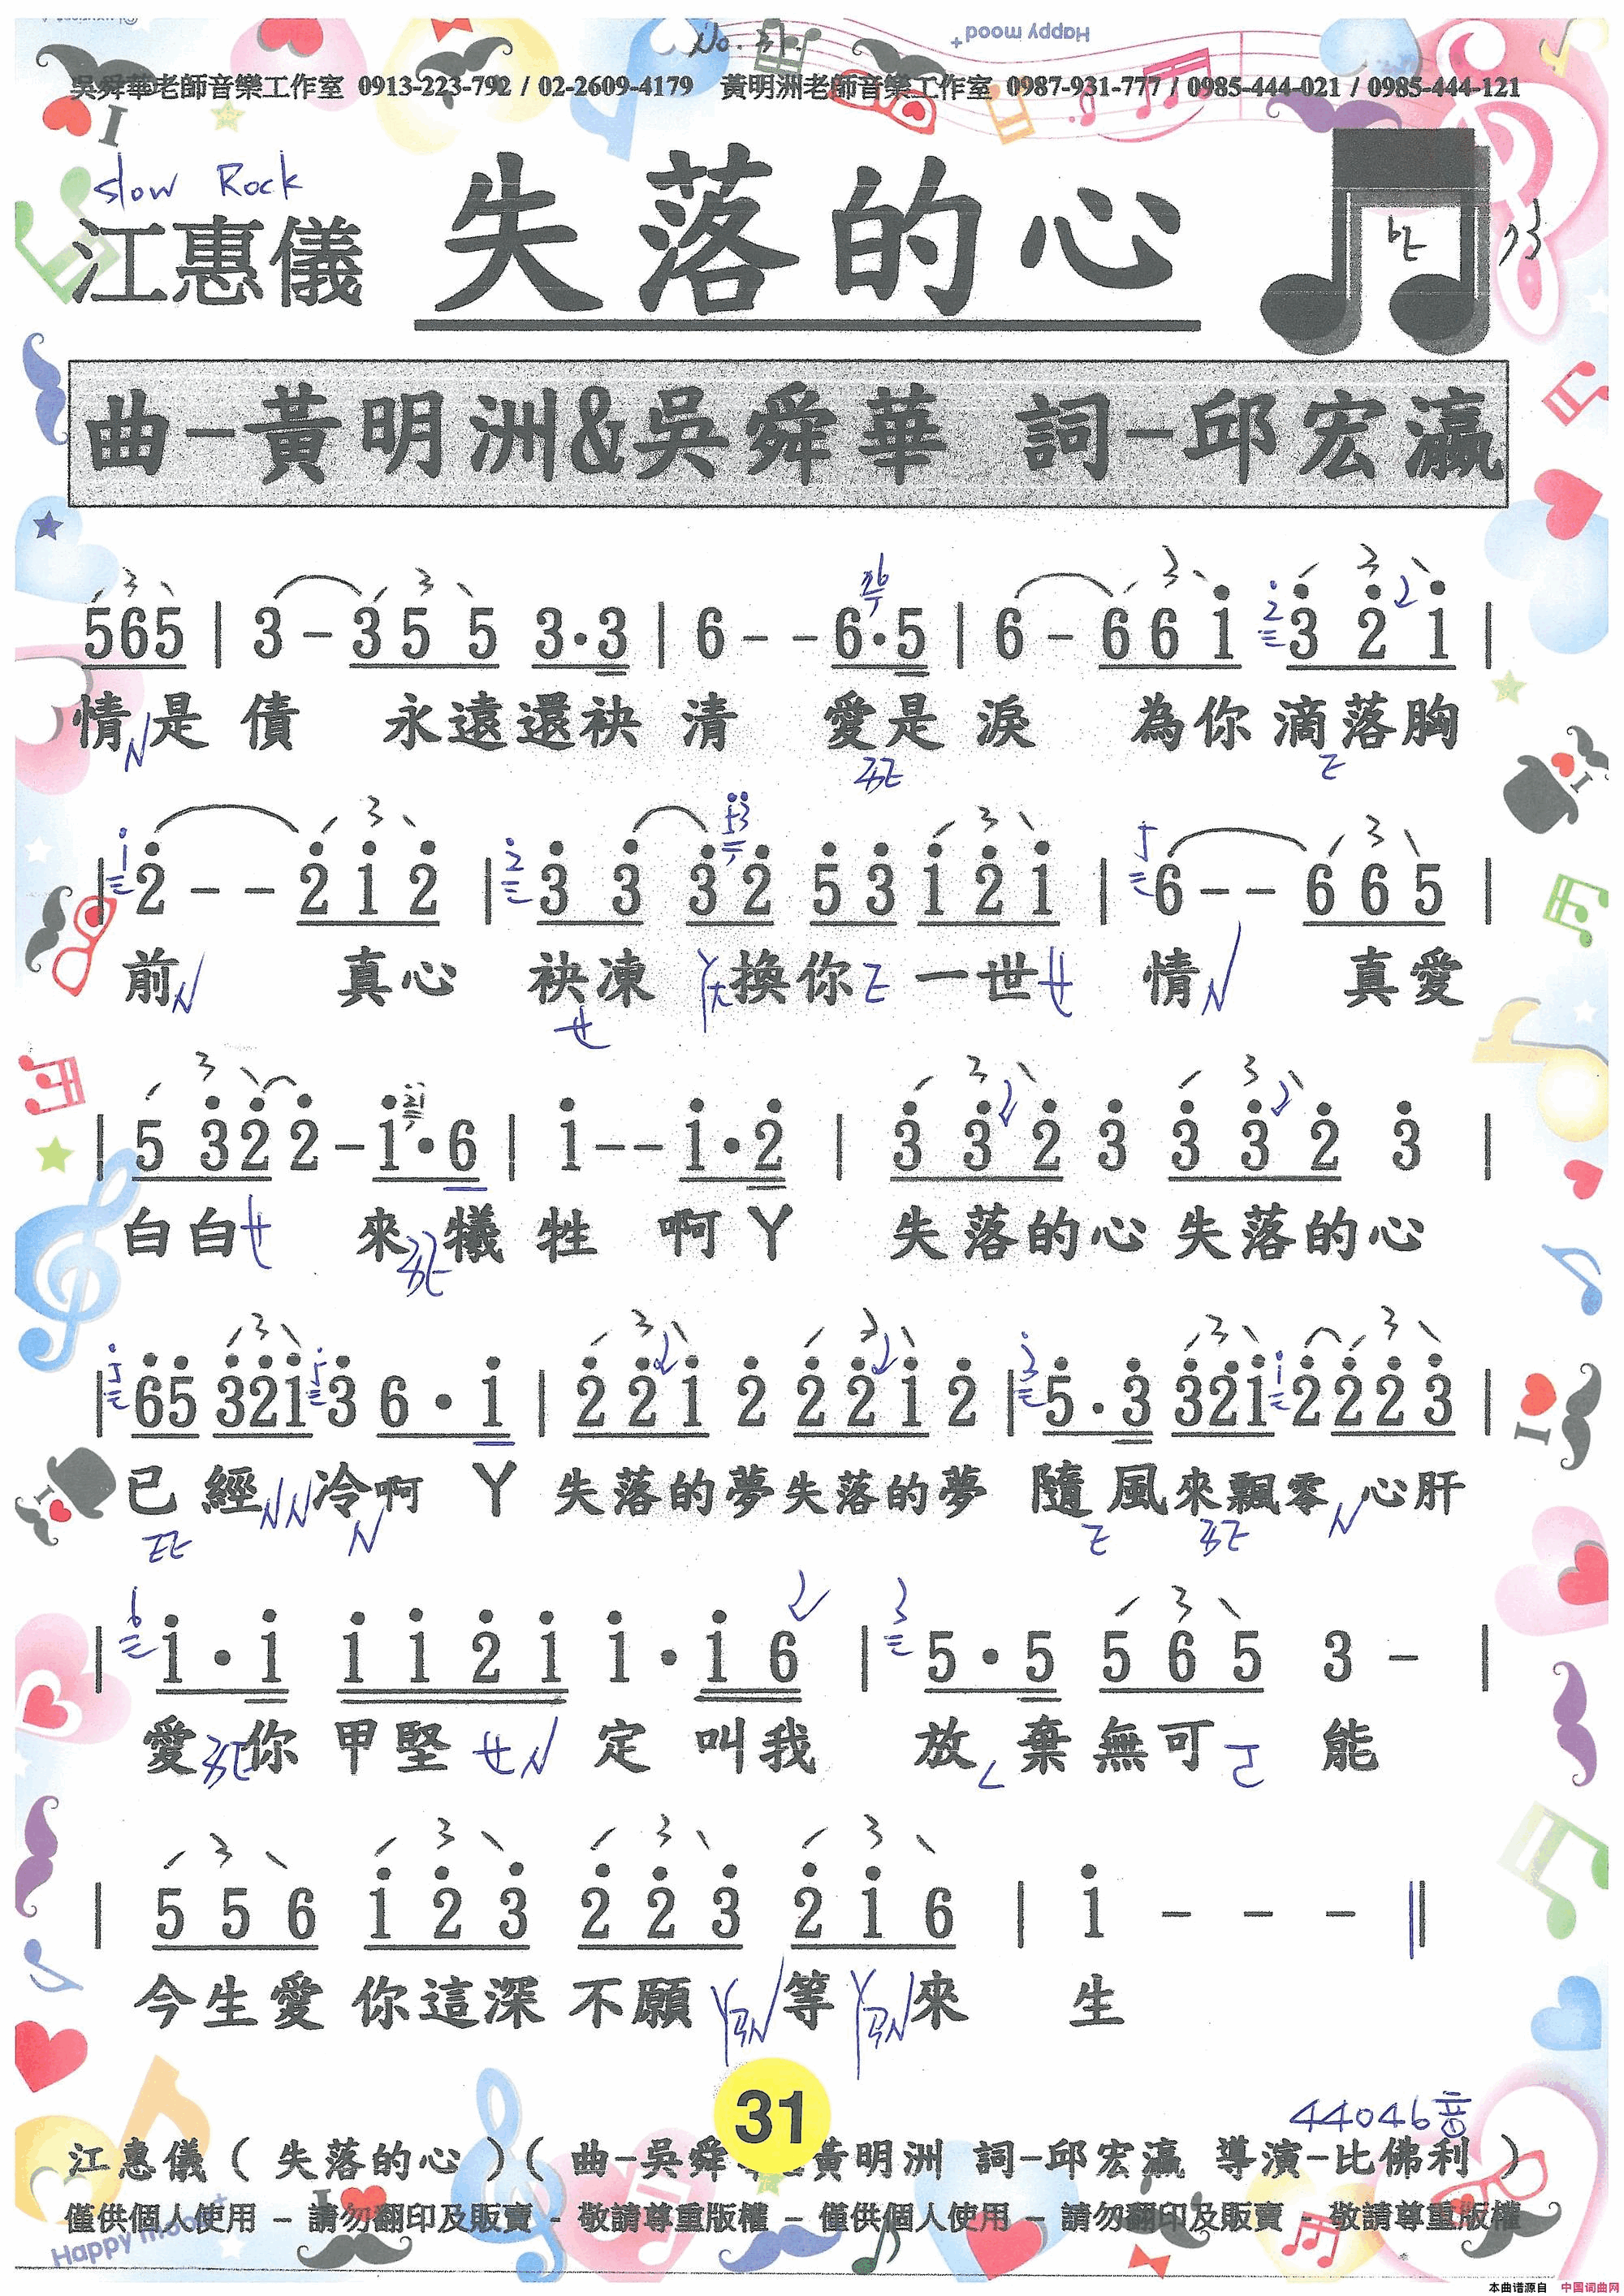 No. 31.
Happy mood+
吳舜華老師音樂工作室 0913-223-792 / 02-2609-4179 黃明洲老師音樂工作室 0987-931-777 / 0985-444-021 / 0985-444-121
slow Rock
江惠儀 失落的心
曲-黃明洲&吳舜華 詞-邱宏瀛
565 | 3 - 3 5 5 3·3 | 6 - - 6·5 | 6 - 6 6 i 3 2 i |
情是 債 永遠還袂 清 愛是 淚 為你 滴落胸
| 2 - - 2 i 2 | 3 3 3 2 5 3 i 2 i | 6 - - 6 6 5 |
前 真心 袂凍 換你 一世 情 真愛
| 5 3 2 2 - i·6 | i - - i·2 | 3 3 2 3 3 3 2 3 |
白白 來 犧 牲 啊 ㄚ 失落的心 失落的心
| 65 321 3 6 · i | 2 2 i 2 2 2 i 2 | 5 · 3 32i 2 2 2 3 |
已 經 冷啊 ㄚ 失落的夢失落的夢 隨風來飄零 心肝
| i · i i i 2 i i · i 6 | 5 · 5 5 6 5 3 - |
愛 你 甲堅 定 叫我 放 棄無可 能
| 5 5 6 i 2 3 2 2 3 2 i 6 | i - - - ||
今生愛 你這深 不願 等 來 生
31
44046音
江惠儀(失落的心)(曲-吳舜 黃明洲 詞-邱宏瀛 導演-比佛利)
僅供個人使用 – 請勿翻印及販賣 - 敬請尊重版權 – 僅供個人使用 – 請勿翻印及販賣 - 敬請尊重版權
Happy mood+
本曲谱源自 中国词曲网